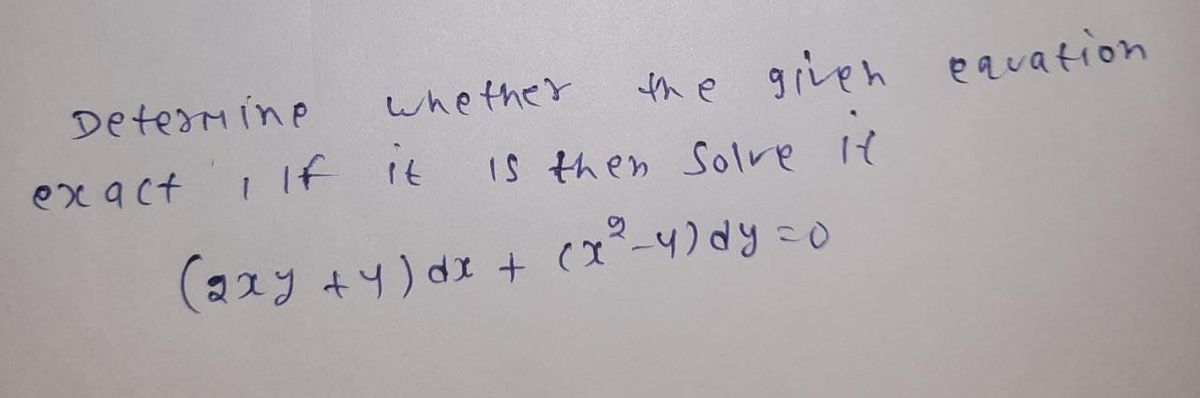 Determine whether the given equation
exact , If it is then Solve it
(2xy + 4) dx + (x² - 4) dy = 0